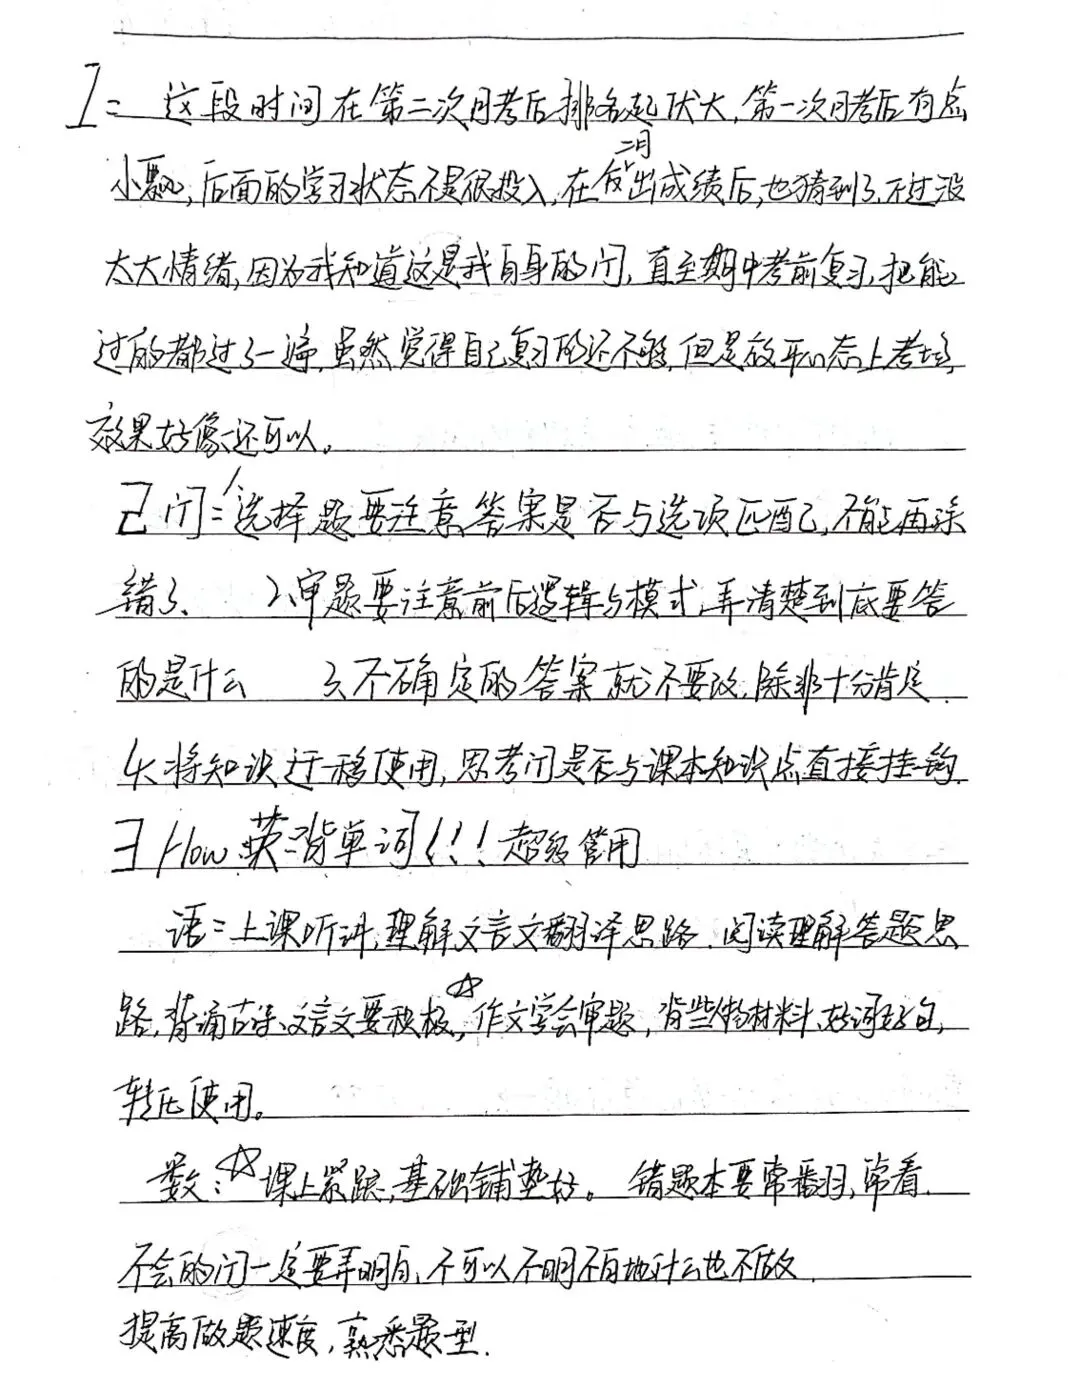 1: 这段时间在第二次月考后排名起伏大,第一次月考后有点
小飘,后面的学习状态不是很投入,在二月出成绩后,也猜到了,不过没
太大情绪,因为我知道这是我自身的问,直至期中考前复习,把能
过的都过了一遍,虽然觉得自己复习的还不够,但是放平心态上考场,
效果好像还可以。
2 问:1、选择题要注意答案是否与选项匹配,不能再涂
错了、 2、审题要注意前后逻辑与模式,弄清楚到底要答
的是什么 3、不确定的答案就不要改,除非十分肯定.
4、将知识迁移使用,思考问是否与课本知识点直接挂钩.
3 How 英:背单词!!!超级管用
语:上课听讲,理解文言文翻译思路.阅读理解答题思
路,背诵古诗、文言文要积极☆,作文学会审题,背些人物材料、好词好句,
转化使用。
数:☆课上紧跟,基础铺垫好。错题本要常翻,常看.
不会的问一定要弄明白,不可以不明不白地什么也不做.
提高做题速度,熟悉题型.